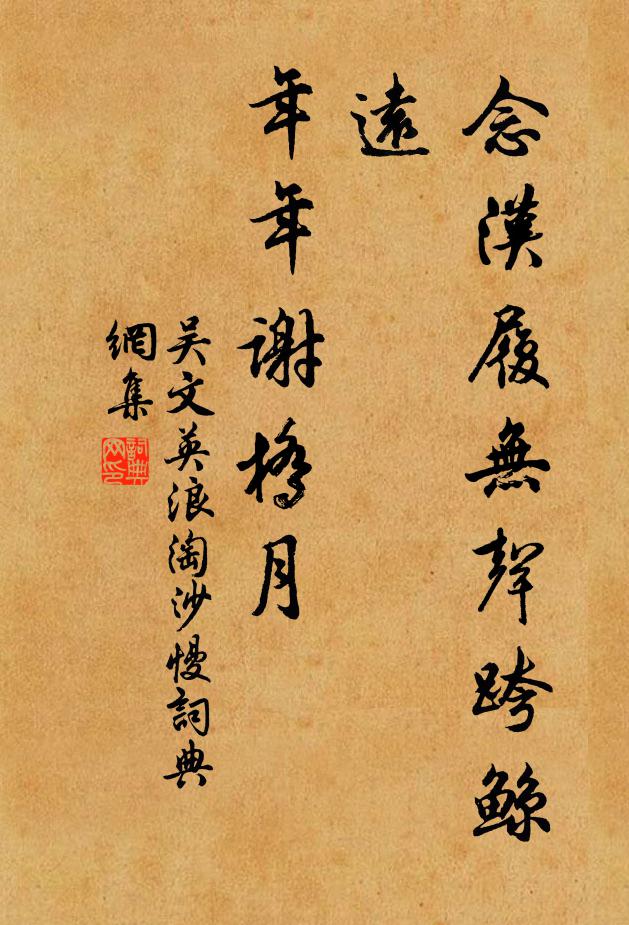 念漢履無聲跨鯨
遠
年年謝橋月
吴文英浪淘沙慢詞典
網集
詞典
网印